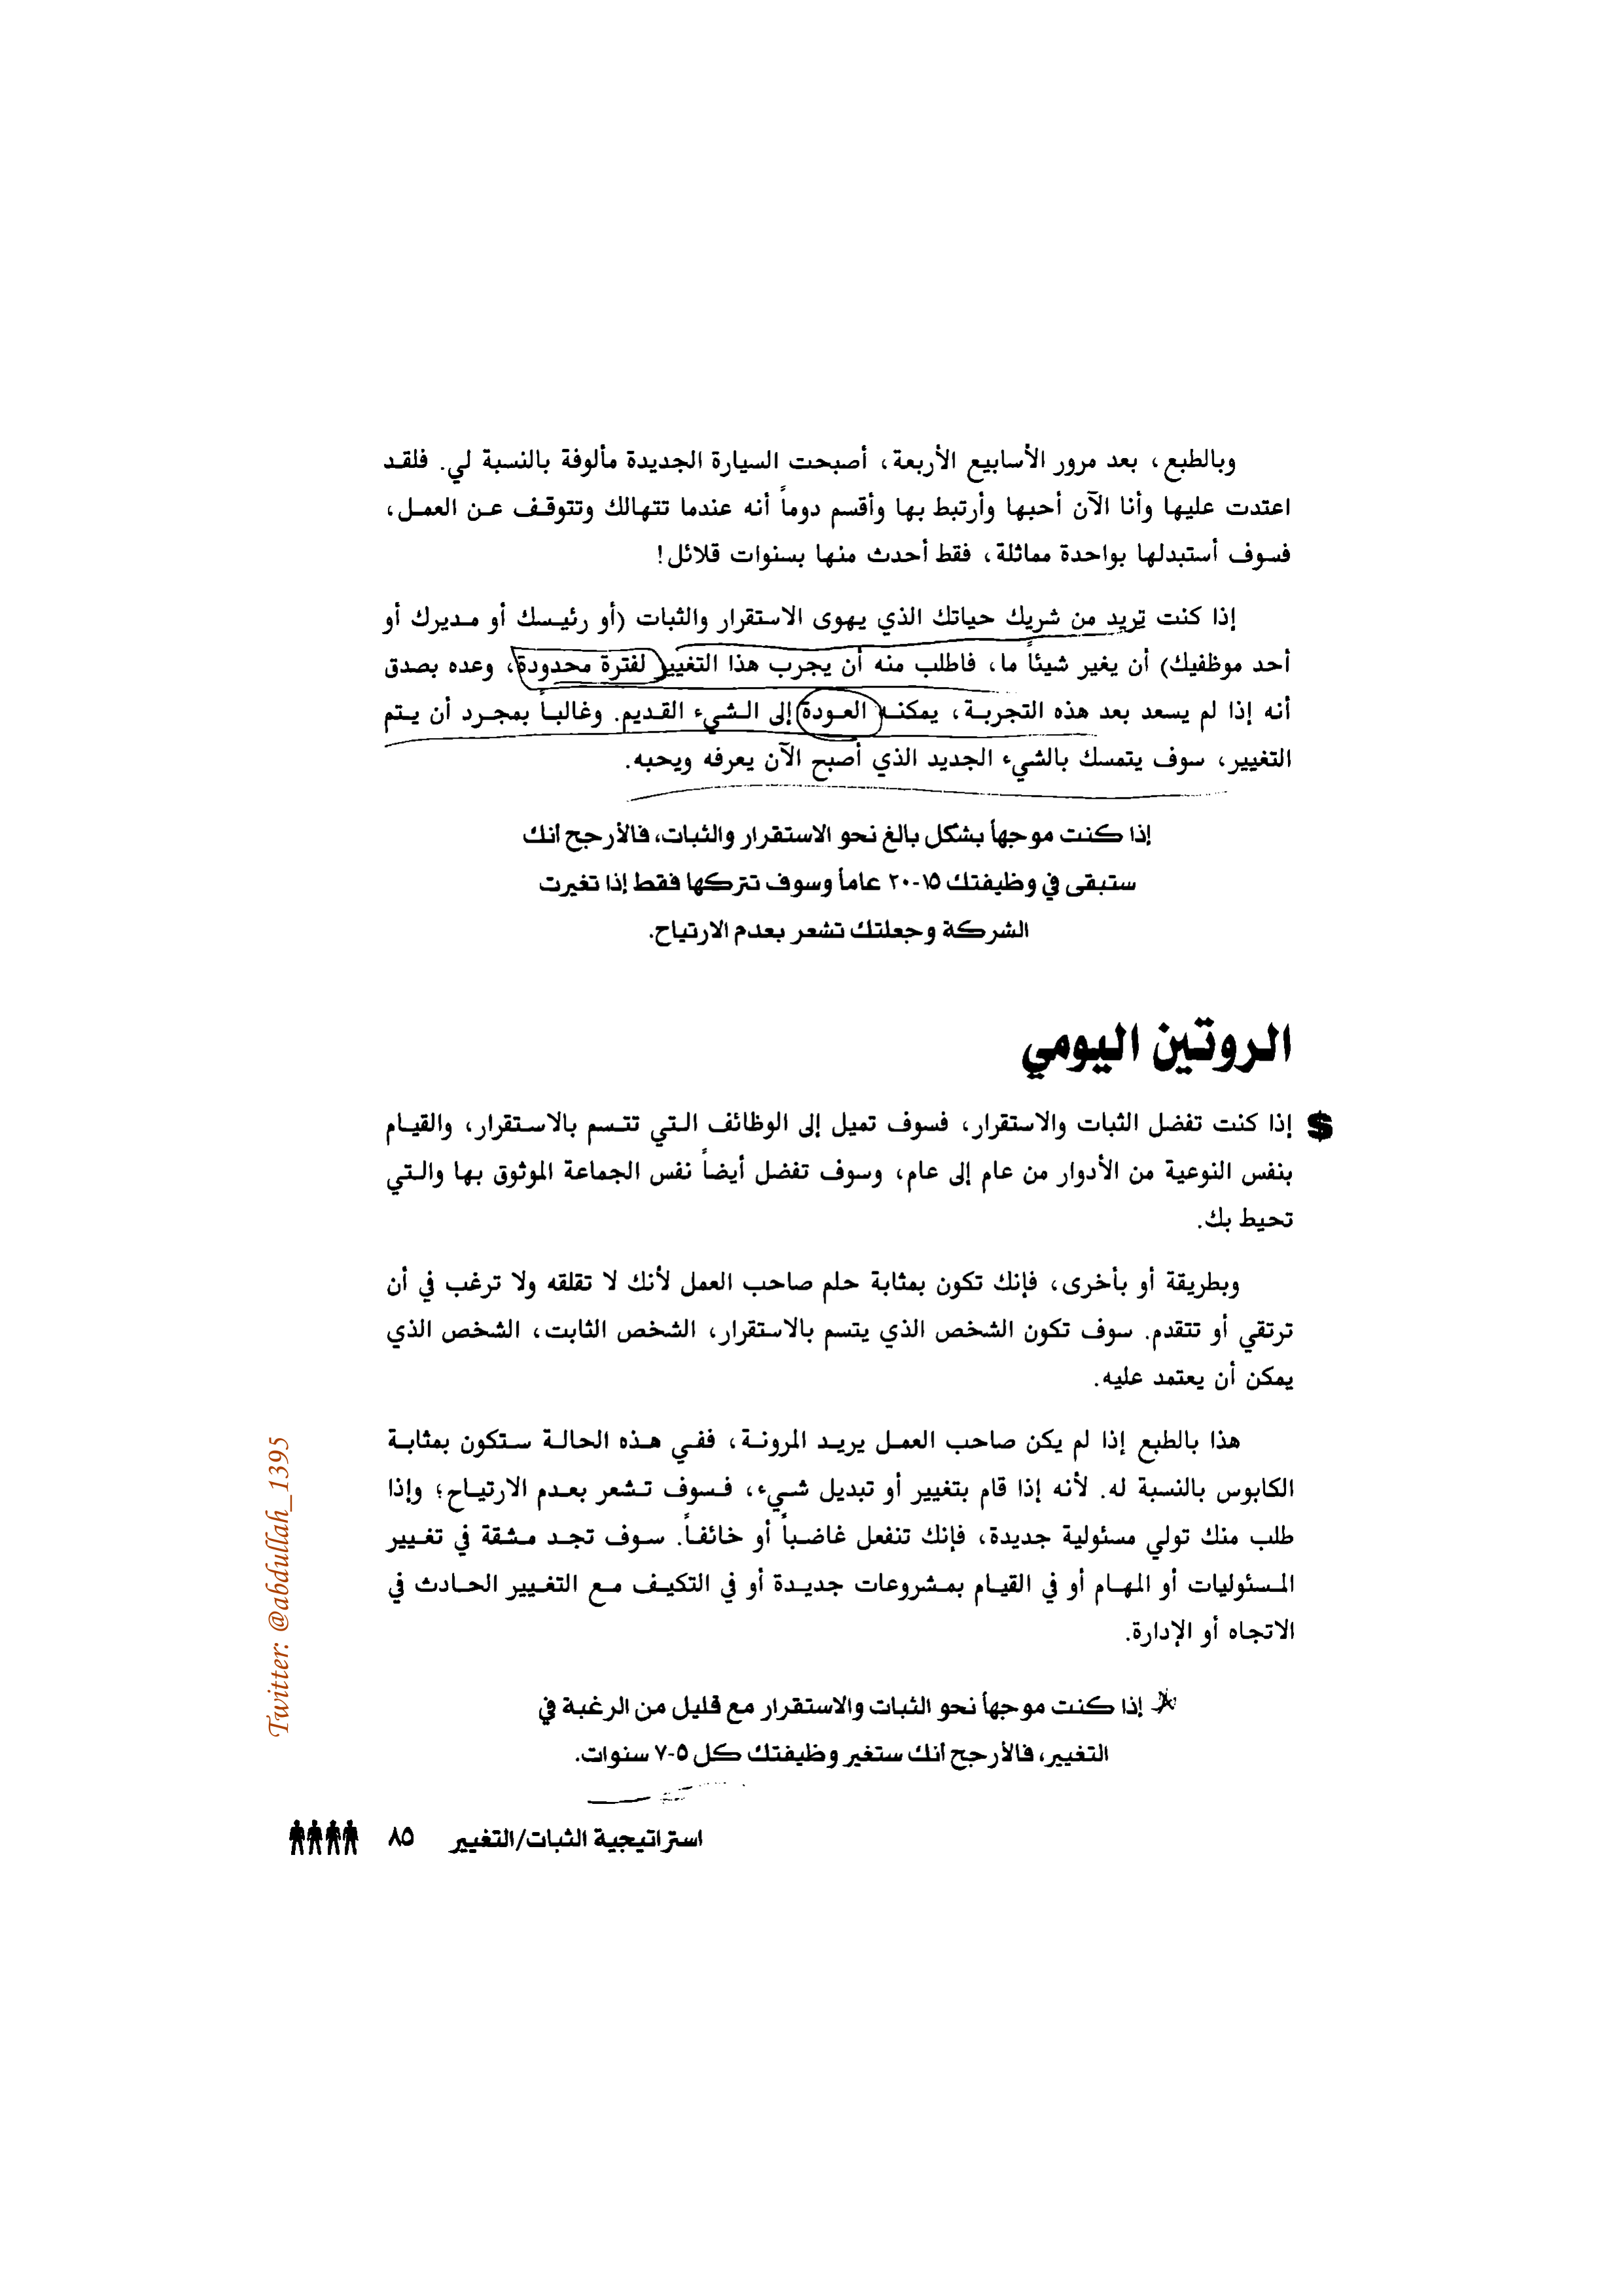 وبالطبع، بعد مرور الأسابيع الأربعة، أصبحت السيارة الجديدة مألوفة بالنسبة لي. فلقد
اعتدت عليها وأنا الآن أحبها وأرتبط بها وأقسم دوماً أنه عندما تتهالك وتتوقف عن العمل،
فسوف أستبدلها بواحدة مماثلة، فقط أحدث منها بسنوات قلائل!
إذا كنت تريد من شريك حياتك الذي يهوى الاستقرار والثبات (أو رئيسك أو مديرك أو
أحد موظفيك) أن يغير شيئاً ما، فاطلب منه أن يجرب هذا التغيير لفترة محدودة، وعده بصدق
أنه إذا لم يسعد بعد هذه التجربة، يمكنه العودة إلى الشيء القديم. وغالباً بمجرد أن يتم
التغيير، سوف يتمسك بالشيء الجديد الذي أصبح الآن يعرفه ويحبه.
إذا كنت موجهاً بشكل بالغ نحو الاستقرار والثبات، فالأرجح أنك
ستبقى في وظيفتك ١٥-٢٠ عاماً وسوف تتركها فقط إذا تغيرت
الشركة وجعلتك تشعر بعدم الارتياح.
الروتين اليومي
$ إذا كنت تفضل الثبات والاستقرار، فسوف تميل إلى الوظائف التي تتسم بالاستقرار، والقيام
بنفس النوعية من الأدوار من عام إلى عام، وسوف تفضل أيضاً نفس الجماعة الموثوق بها والتي
تحيط بك.
وبطريقة أو بأخرى، فإنك تكون بمثابة حلم صاحب العمل لأنك لا تقلقه ولا ترغب في أن
ترتقي أو تتقدم. سوف تكون الشخص الذي يتسم بالاستقرار، الشخص الثابت، الشخص الذي
يمكن أن يعتمد عليه.
هذا بالطبع إذا لم يكن صاحب العمل يريد المرونة، ففي هذه الحالة ستكون بمثابة
الكابوس بالنسبة له. لأنه إذا قام بتغيير أو تبديل شيء، فسوف تشعر بعدم الارتياح؛ وإذا
طلب منك تولي مسئولية جديدة، فإنك تنفعل غاضباً أو خائفاً. سوف تجد مشقة في تغيير
المسئوليات أو المهام أو في القيام بمشروعات جديدة أو في التكيف مع التغيير الحادث في
الاتجاه أو الإدارة.
إذا كنت موجهاً نحو الثبات والاستقرار مع قليل من الرغبة في
التغيير، فالأرجح أنك ستغير وظيفتك كل ٥-٧ سنوات.
استراتيجية الثبات/التغيير ٨٥
Twitter: @abdullah_1395